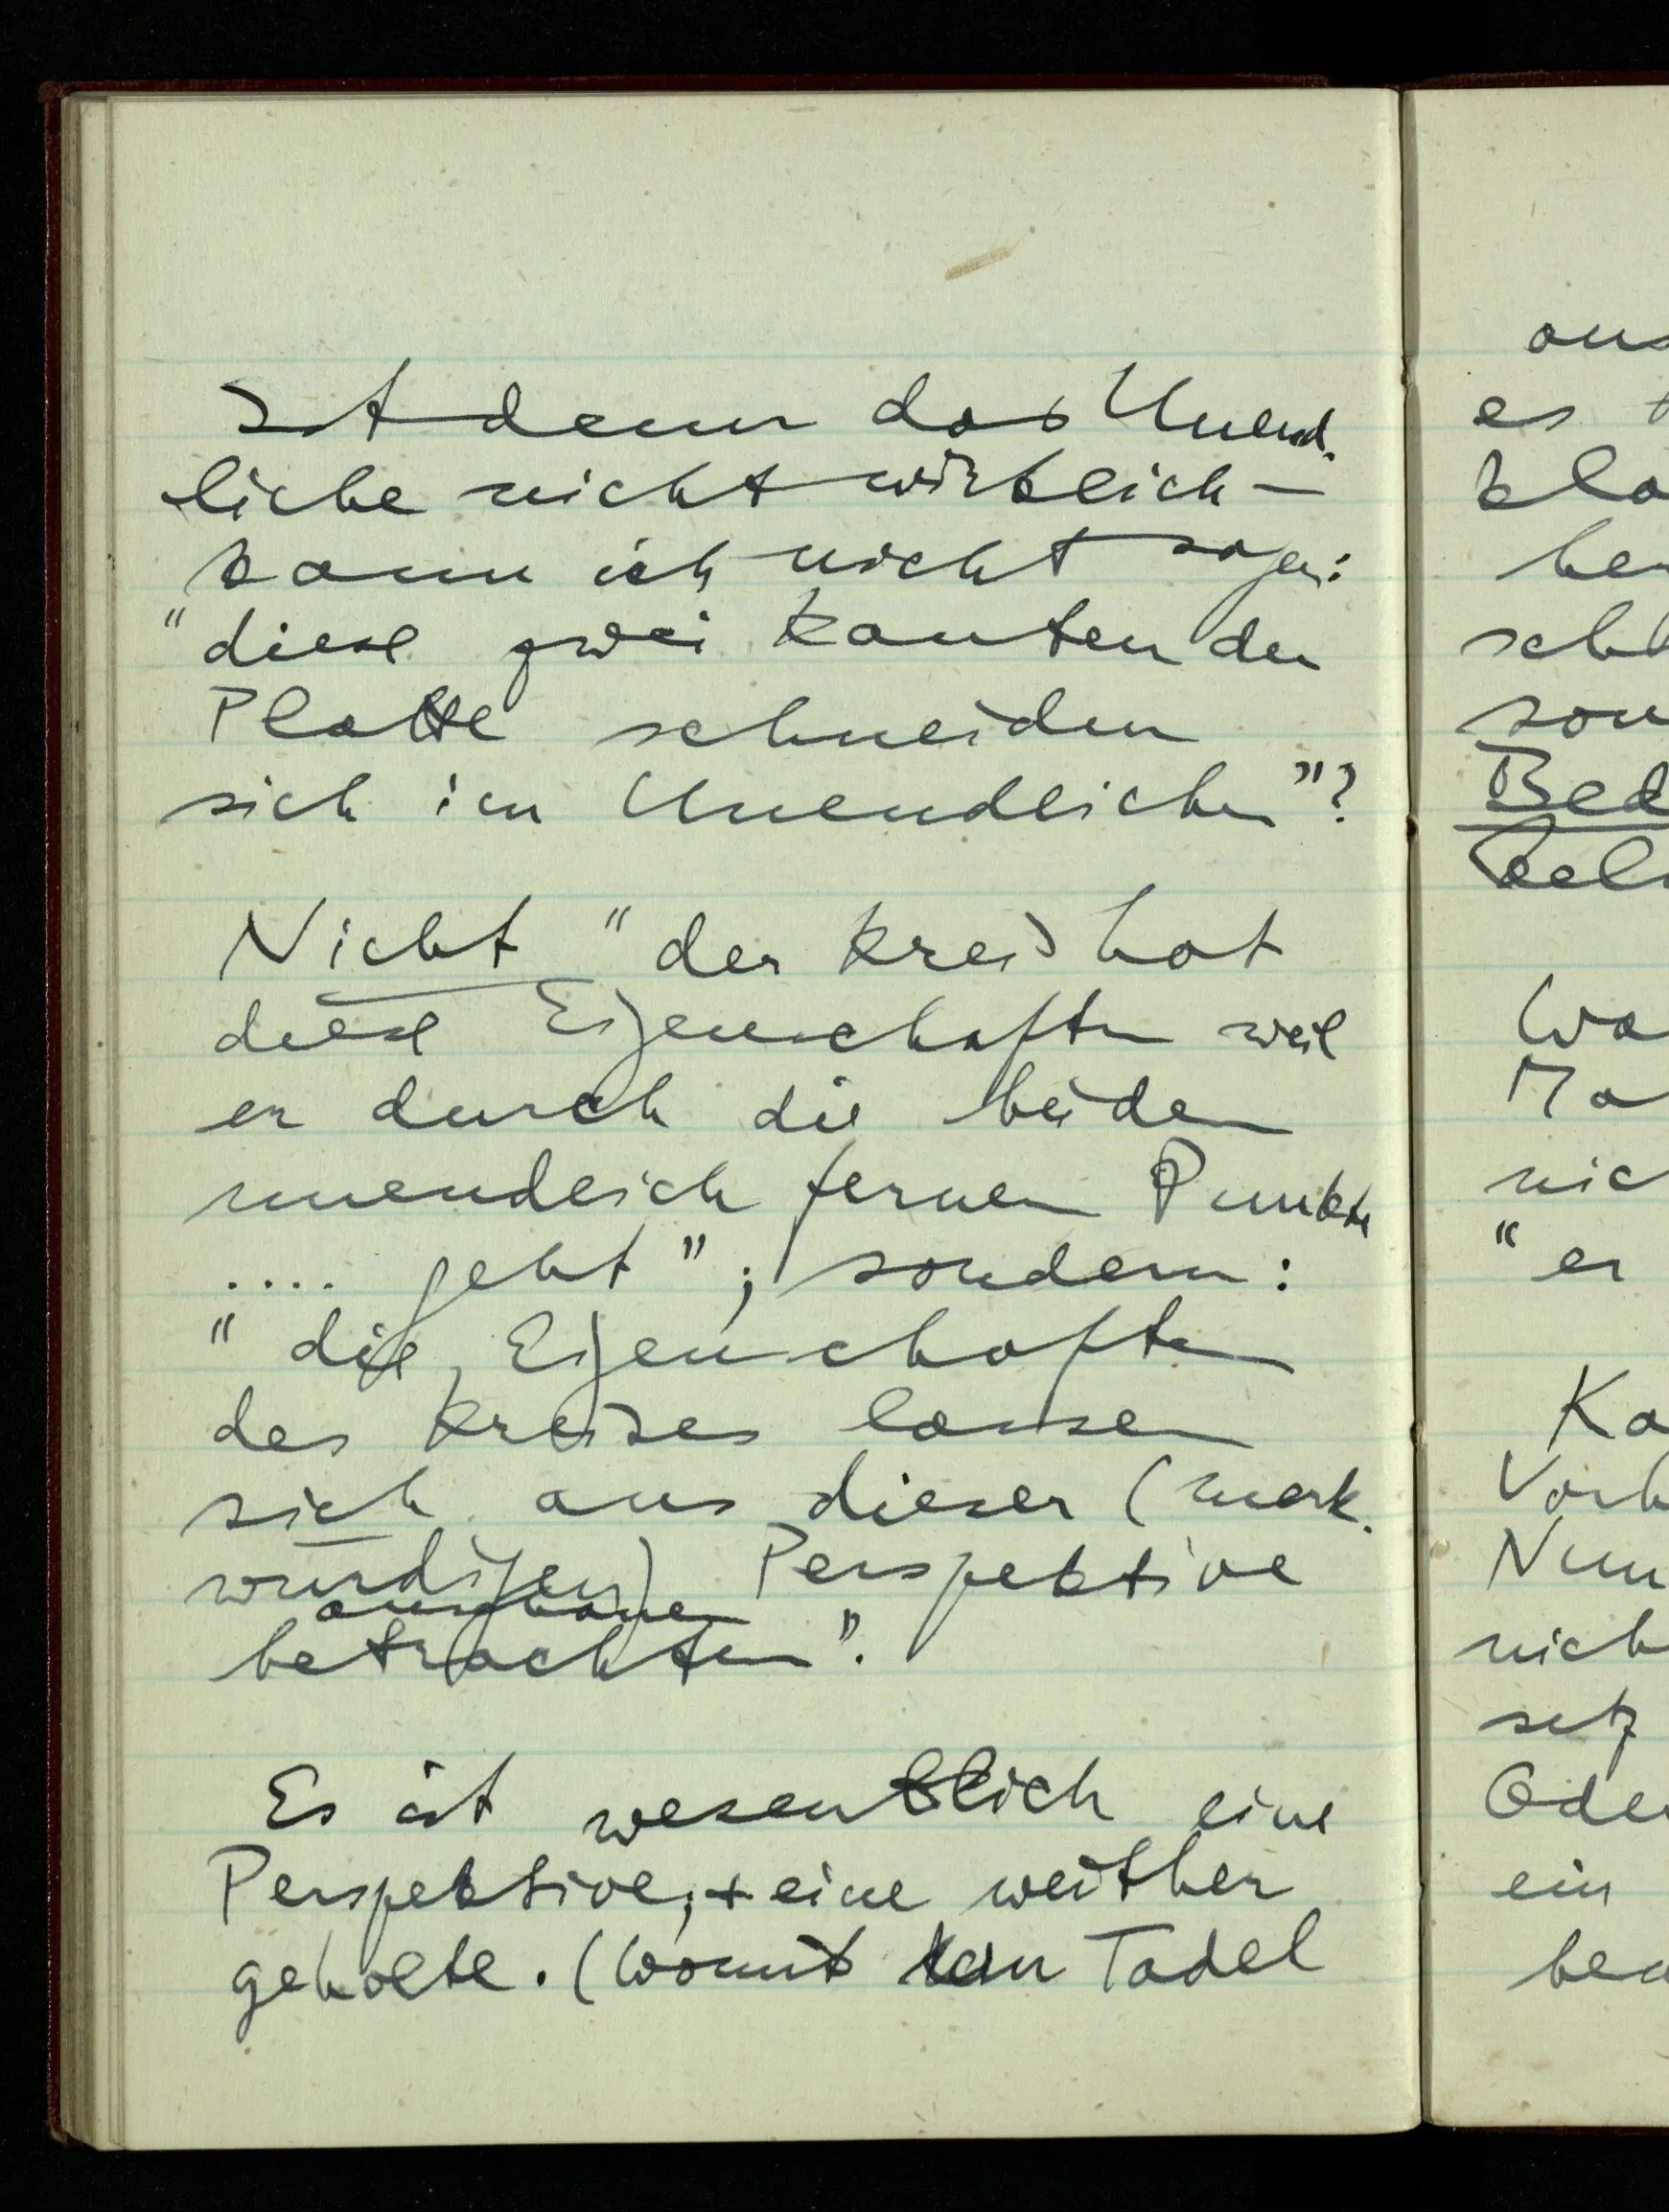 Ist denn das Unend-
liche nicht wirklich –
kann ich nicht sagen:
"diese zwei Kanten der
Platte schneiden
sich im Unendlichen"?
Nicht "der Kreis hat
diese Eigenschaften weil
er durch die beiden
unendlich fernen Punkte
.... geht"; sondern:
"die Eigenschaften
des Kreises lassen
sich aus dieser (merk-
würdigen) Perspektive
anschauen
betrachten".
Es ist wesentlich eine
Perspektive, + eine weither
geholte. (Womit kein Tadel
es
Bed
Wa
Ma
nic
"er
Ka
Vorh
Nun
nich
setz
Ode
ein